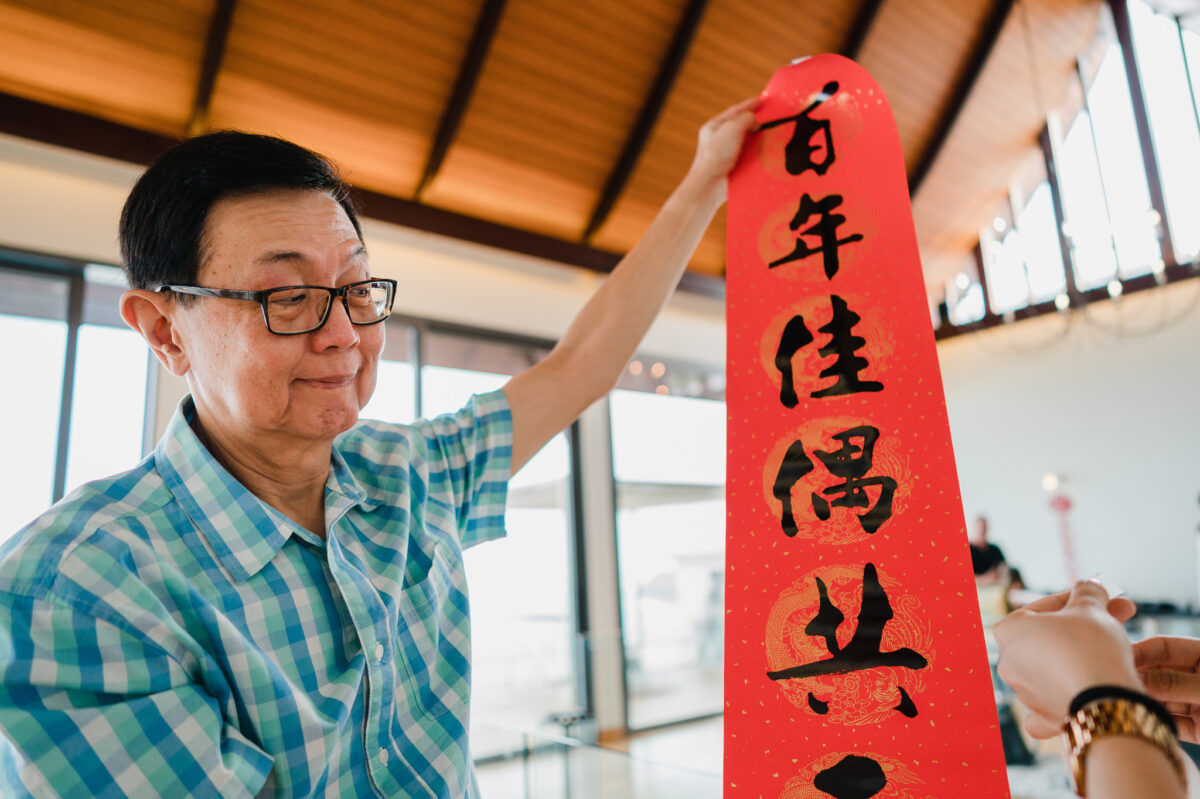 百年佳偶共